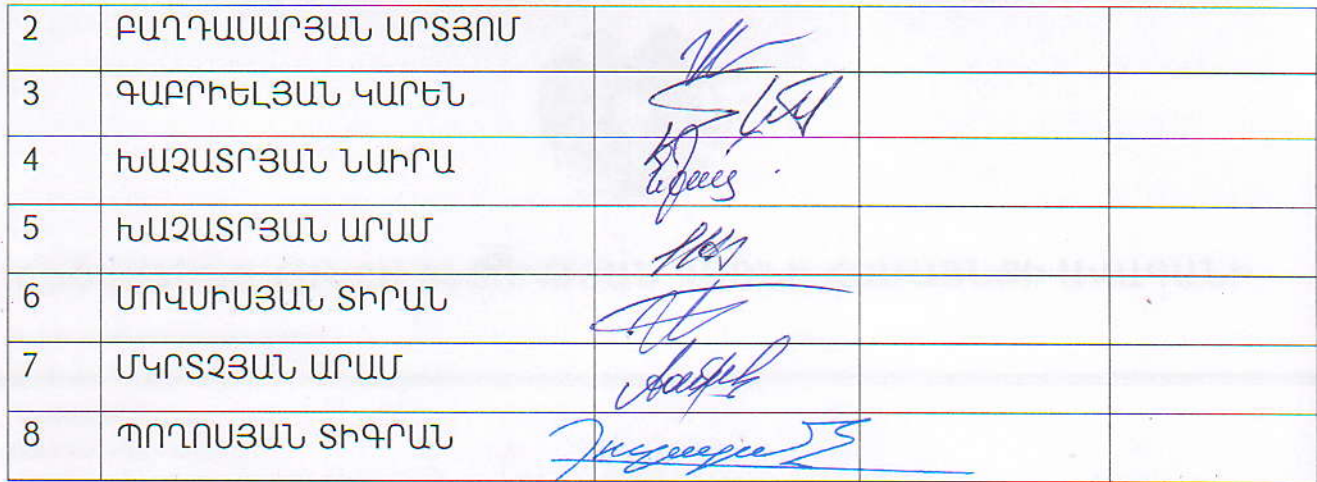 2 ԲԱՂԴԱՍԱՐՅԱՆ ԱՐՏՅՈՄ
3 ԳԱԲՐԻԵԼՅԱՆ ԿԱՐԵՆ
4 ԽԱՉԱՏՐՅԱՆ ՆԱԻՐԱ
5 ԽԱՉԱՏՐՅԱՆ ԱՐԱՄ
6 ՄՈՎՍԻՍՅԱՆ ՏԻՐԱՆ
7 ՄԿՐՏՉՅԱՆ ԱՐԱՄ
8 ՊՈՂՈՍՅԱՆ ՏԻԳՐԱՆ